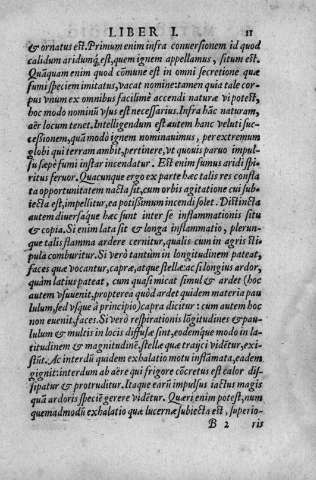 LIBER I. 11
& ornatus est. Primum enim infra conuersionem id quod
calidum aridumq́; est, quem ignem appellamus, situm est.
Quãquam enim quod cõmune est in omni secretione quæ
fumi speciem imitatus, vacat nomine: tamen quia tale cor-
pus vnum ex omnibus facilimè accendi naturæ vi potest,
hoc modo nominũ vsus est necessarius. Infra hãc naturam,
aër locum tenet. Intelligendum est autem hanc veluti suc-
cessionem, quã modò ignem nominauimus, per extremum
globi qui terram ambit, pertinere, vt quouis paruo impul-
su sæpè fumi instar incendatur. Est enim fumus aridi spi-
ritus feruor. Quacunque ergo ex parte hæc talis res consta
ta opportunitatem nacta sit, cum orbis agitatione cui sub-
iecta est, impellitur, ea potissimum incendi solet. Distincta
autem diuersáque hæc sunt inter se inflammationis situ
& copia. Si enim lata sit & longa inflammatio, plerun-
que talis flamma ardere cernitur, qualis cum in agris sti-
pula comburitur. Si verò tantùm in longitudinem pateat,
faces quæ vocantur, capræ, atque stellæ: ac si longius ardor,
quàm latius pateat, cum quasi micat simul & ardet (hoc
autem vsuuenit, propterea quòd ardet quidem materia pau
lulum, sed vsque à principio) capra dicitur: cum autem hoc
non euenit, faces. Si verò respirationis lõgitudines & pau-
lulum & multis in locis diffusæ sint, eodemque modo in la-
titudinem & magnitudinẽ, stellæ quæ traijci vidẽtur, exi-
stũt. Ac interdũ quidem exhalatio motu inflãmata, eadem
gignit: interdum ab aëre qui frigore cõcretus est calor dis-
sipatur & protruditur. Itaque earũ impulsus iactus magis
quã ardoris speciẽ gerere vidẽtur. Quæri enim potest, num
quemadmodũ exhalatio quæ lucernæ subiecta est, superio-
B 2 ris